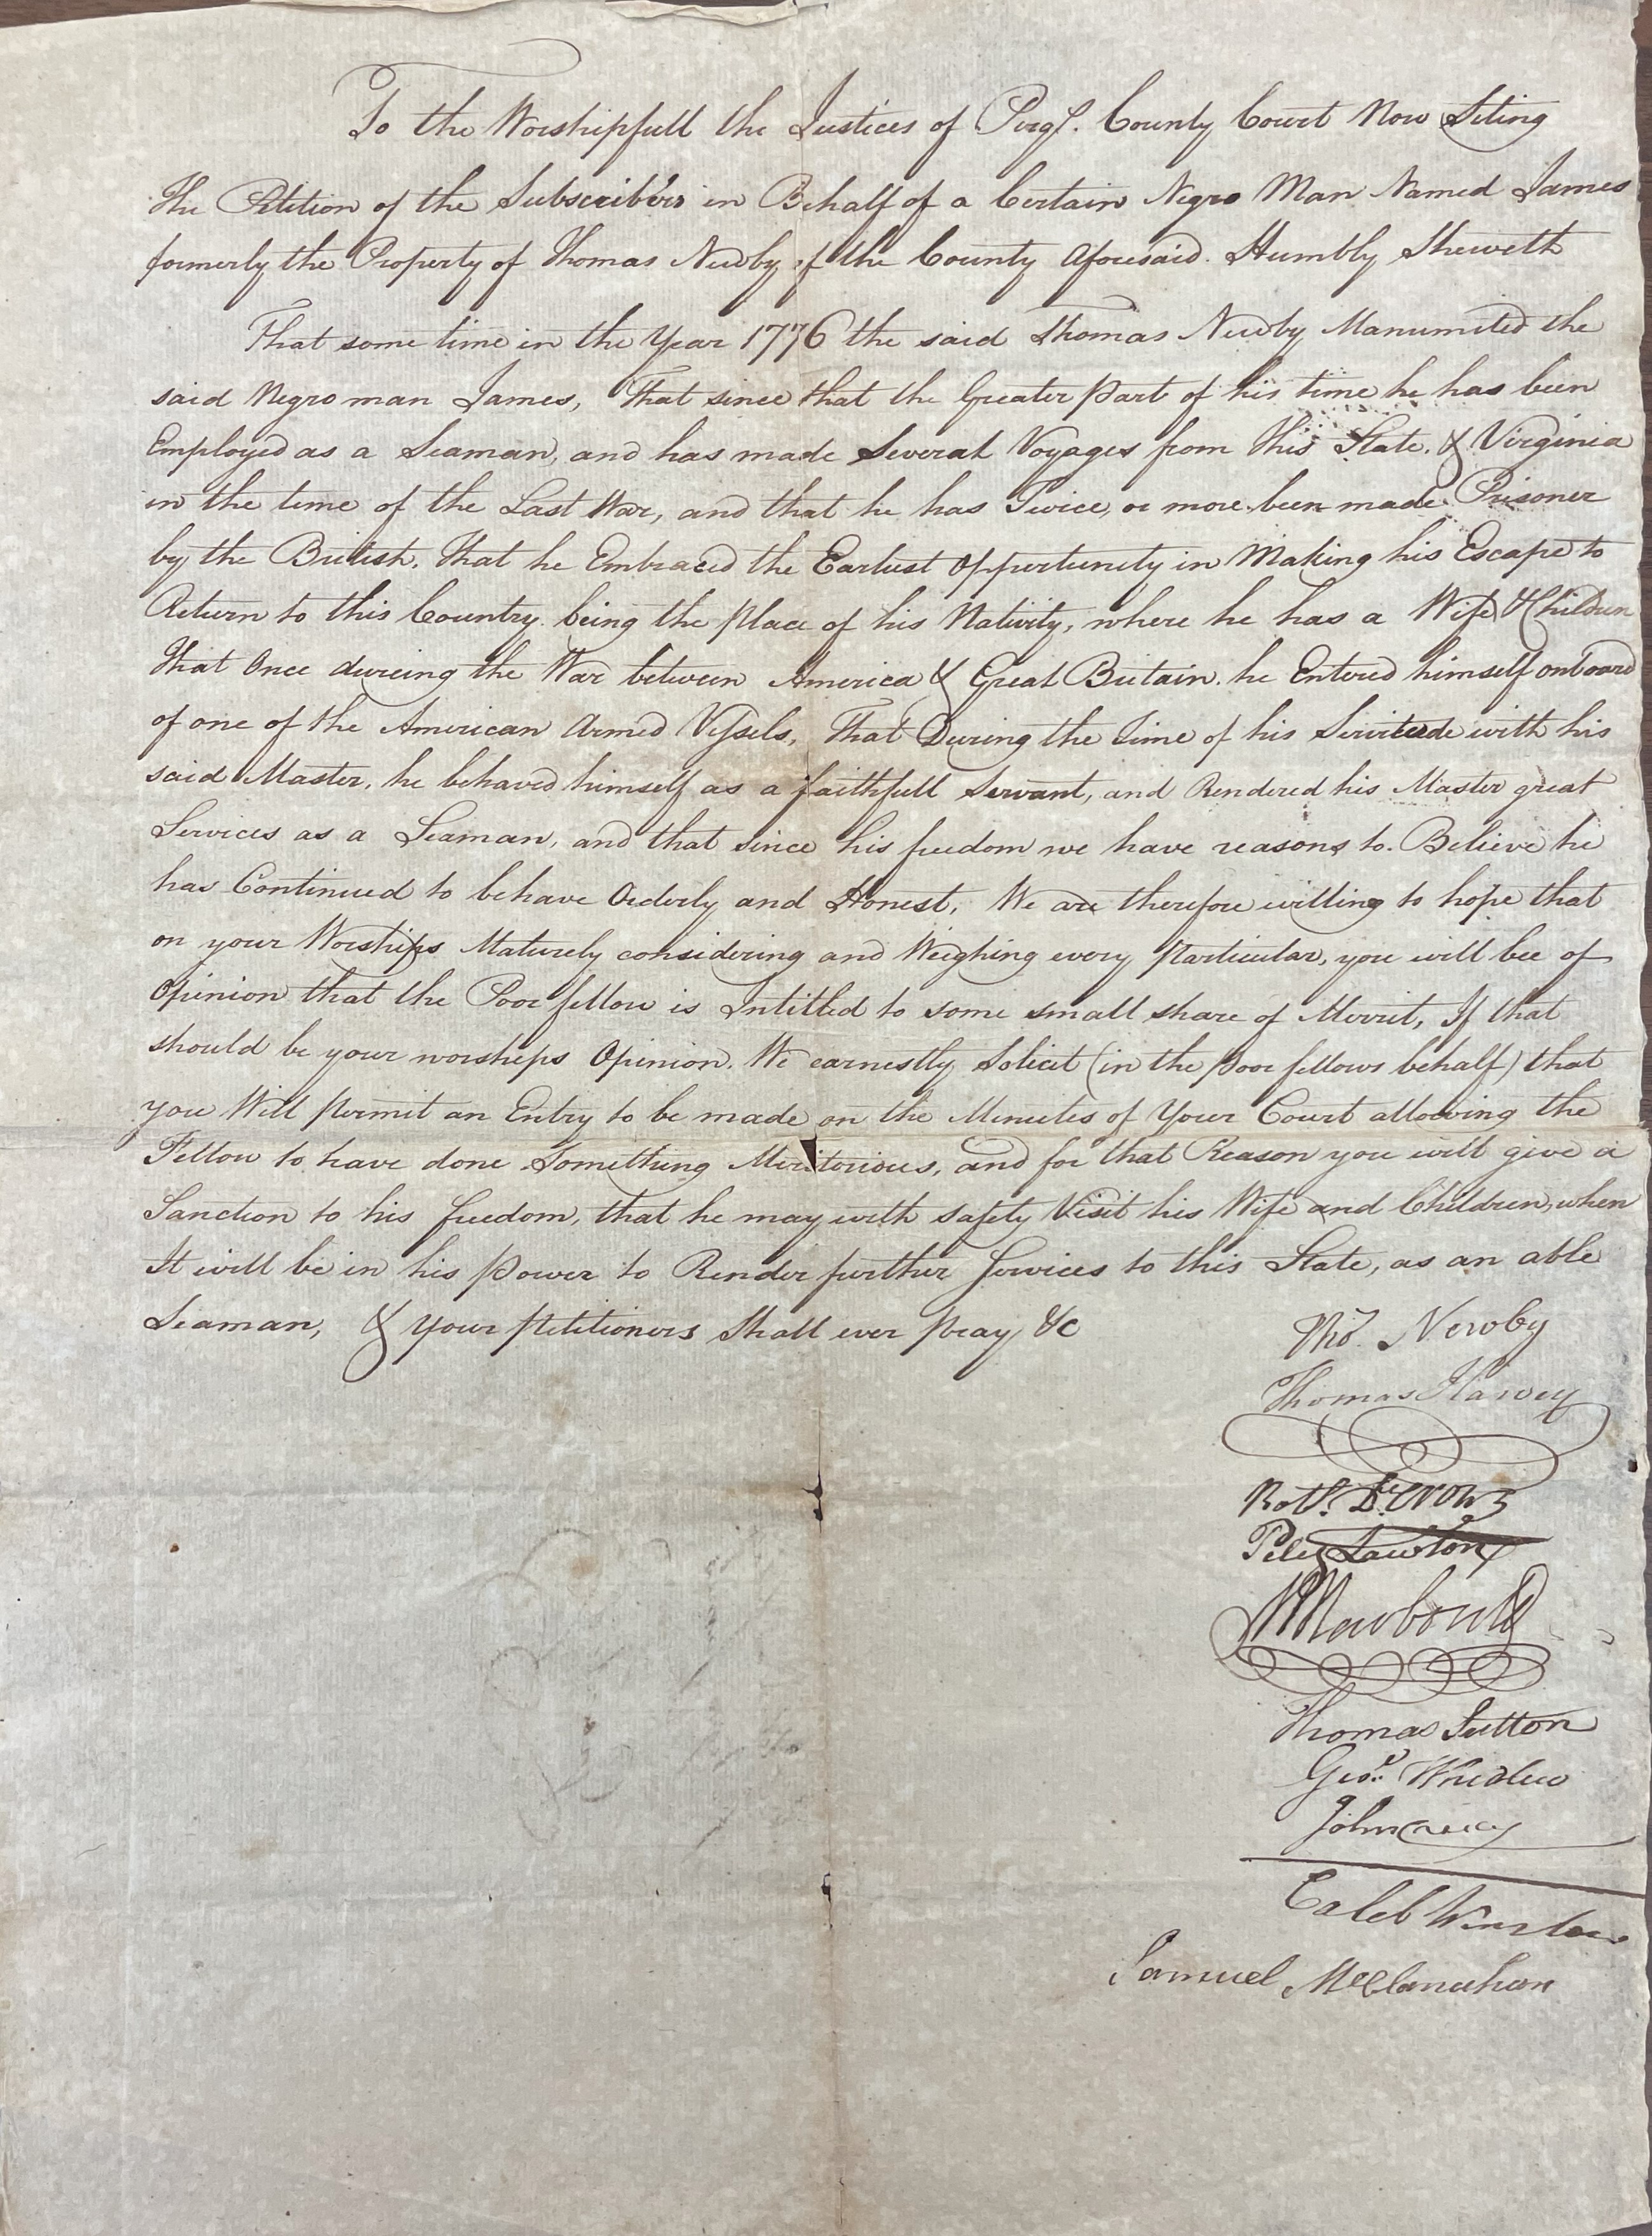 To the Worshipfull the Justices of Perqs. County Court Now Siting
The Petition of the Subscribers in Behalf of a Certain Negro Man Named James
formerly the Property of Thomas Newby of the County Aforesaid. Humbly Sheweth
That some time in the Year 1776 the said Thomas Newby Manumited the
said Negro man James, That since that the Greater part of his time he has been
Employed as a Seaman, and has made Several Voyages from this State. & Virginia
in the time of the Last War, and that he has Twice, or more been made Prisoner
by the British. That he Embraced the Earliest Oppertunity in Making his Escape to
Return to this Country being the place of his Nativity, where he has a Wife & Children
That Once dureing the War between America & Great Britain. he Entered himself onboard
of one of the American Armed Vessels, That During the time of his Servitude with his
said Master, he behaved himself as a faithfull Servant, and Rendered his Master great
Services as a Seaman, and that since his freedom we have reasons to Believe he
has Continued to behave Orderly and Honest, We are therefore willing to hope that
on your Worships Maturely considering and Weighing every particular, you will bee of
Opinion that the Poor fellow is Intitled to some small share of Merrit, If that
should be your worsheps Opinion. We earnestly Solicit (in the poor fellows behalf) that
you Will permit an Entry to be made on the Minutes of Your Court allowing the
Fellow to have done Something Meritorious, and for that Reason you will give a
Sanction to his freedom, that he may with safety Visit his Wife and Children, when
It will be in his power to Render further Services to this State, as an able
Seaman, & your petitioners Shall ever pray &c
Tho. Newby
Thomas Harvey
Thomas Sutton
John
Caleb Winslow
Samuel McClanahan